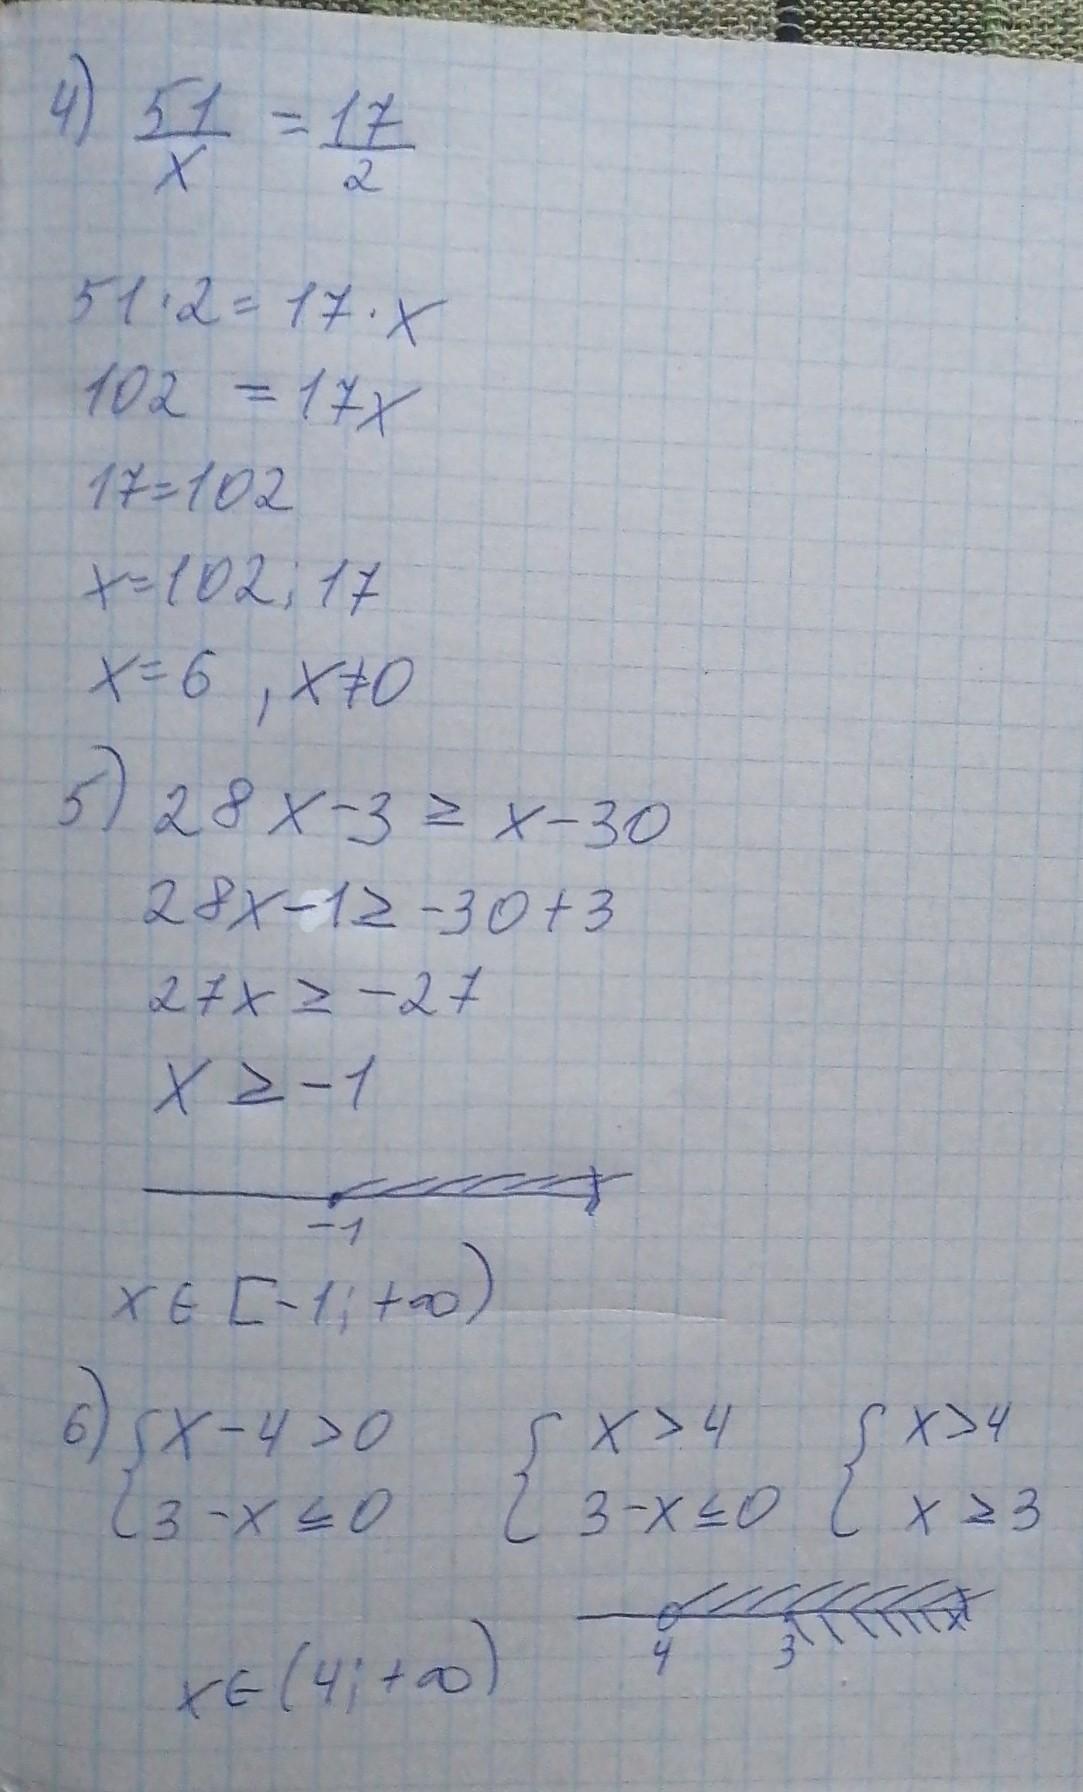 4) 51/x = 17/2
51·2=17·x
102 = 17x
17=102
x=102:17
x=6 , x≠0
5) 28x-3 ≥ x-30
28x-1≥ -30+3
27x ≥ -27
x ≥ -1
-1
x∈[-1;+∞)
6) { x-4>0 { x>4 { x>4
{ 3-x≤0 { 3-x≤0 { x≥3
4 3
x∈(4;+∞)